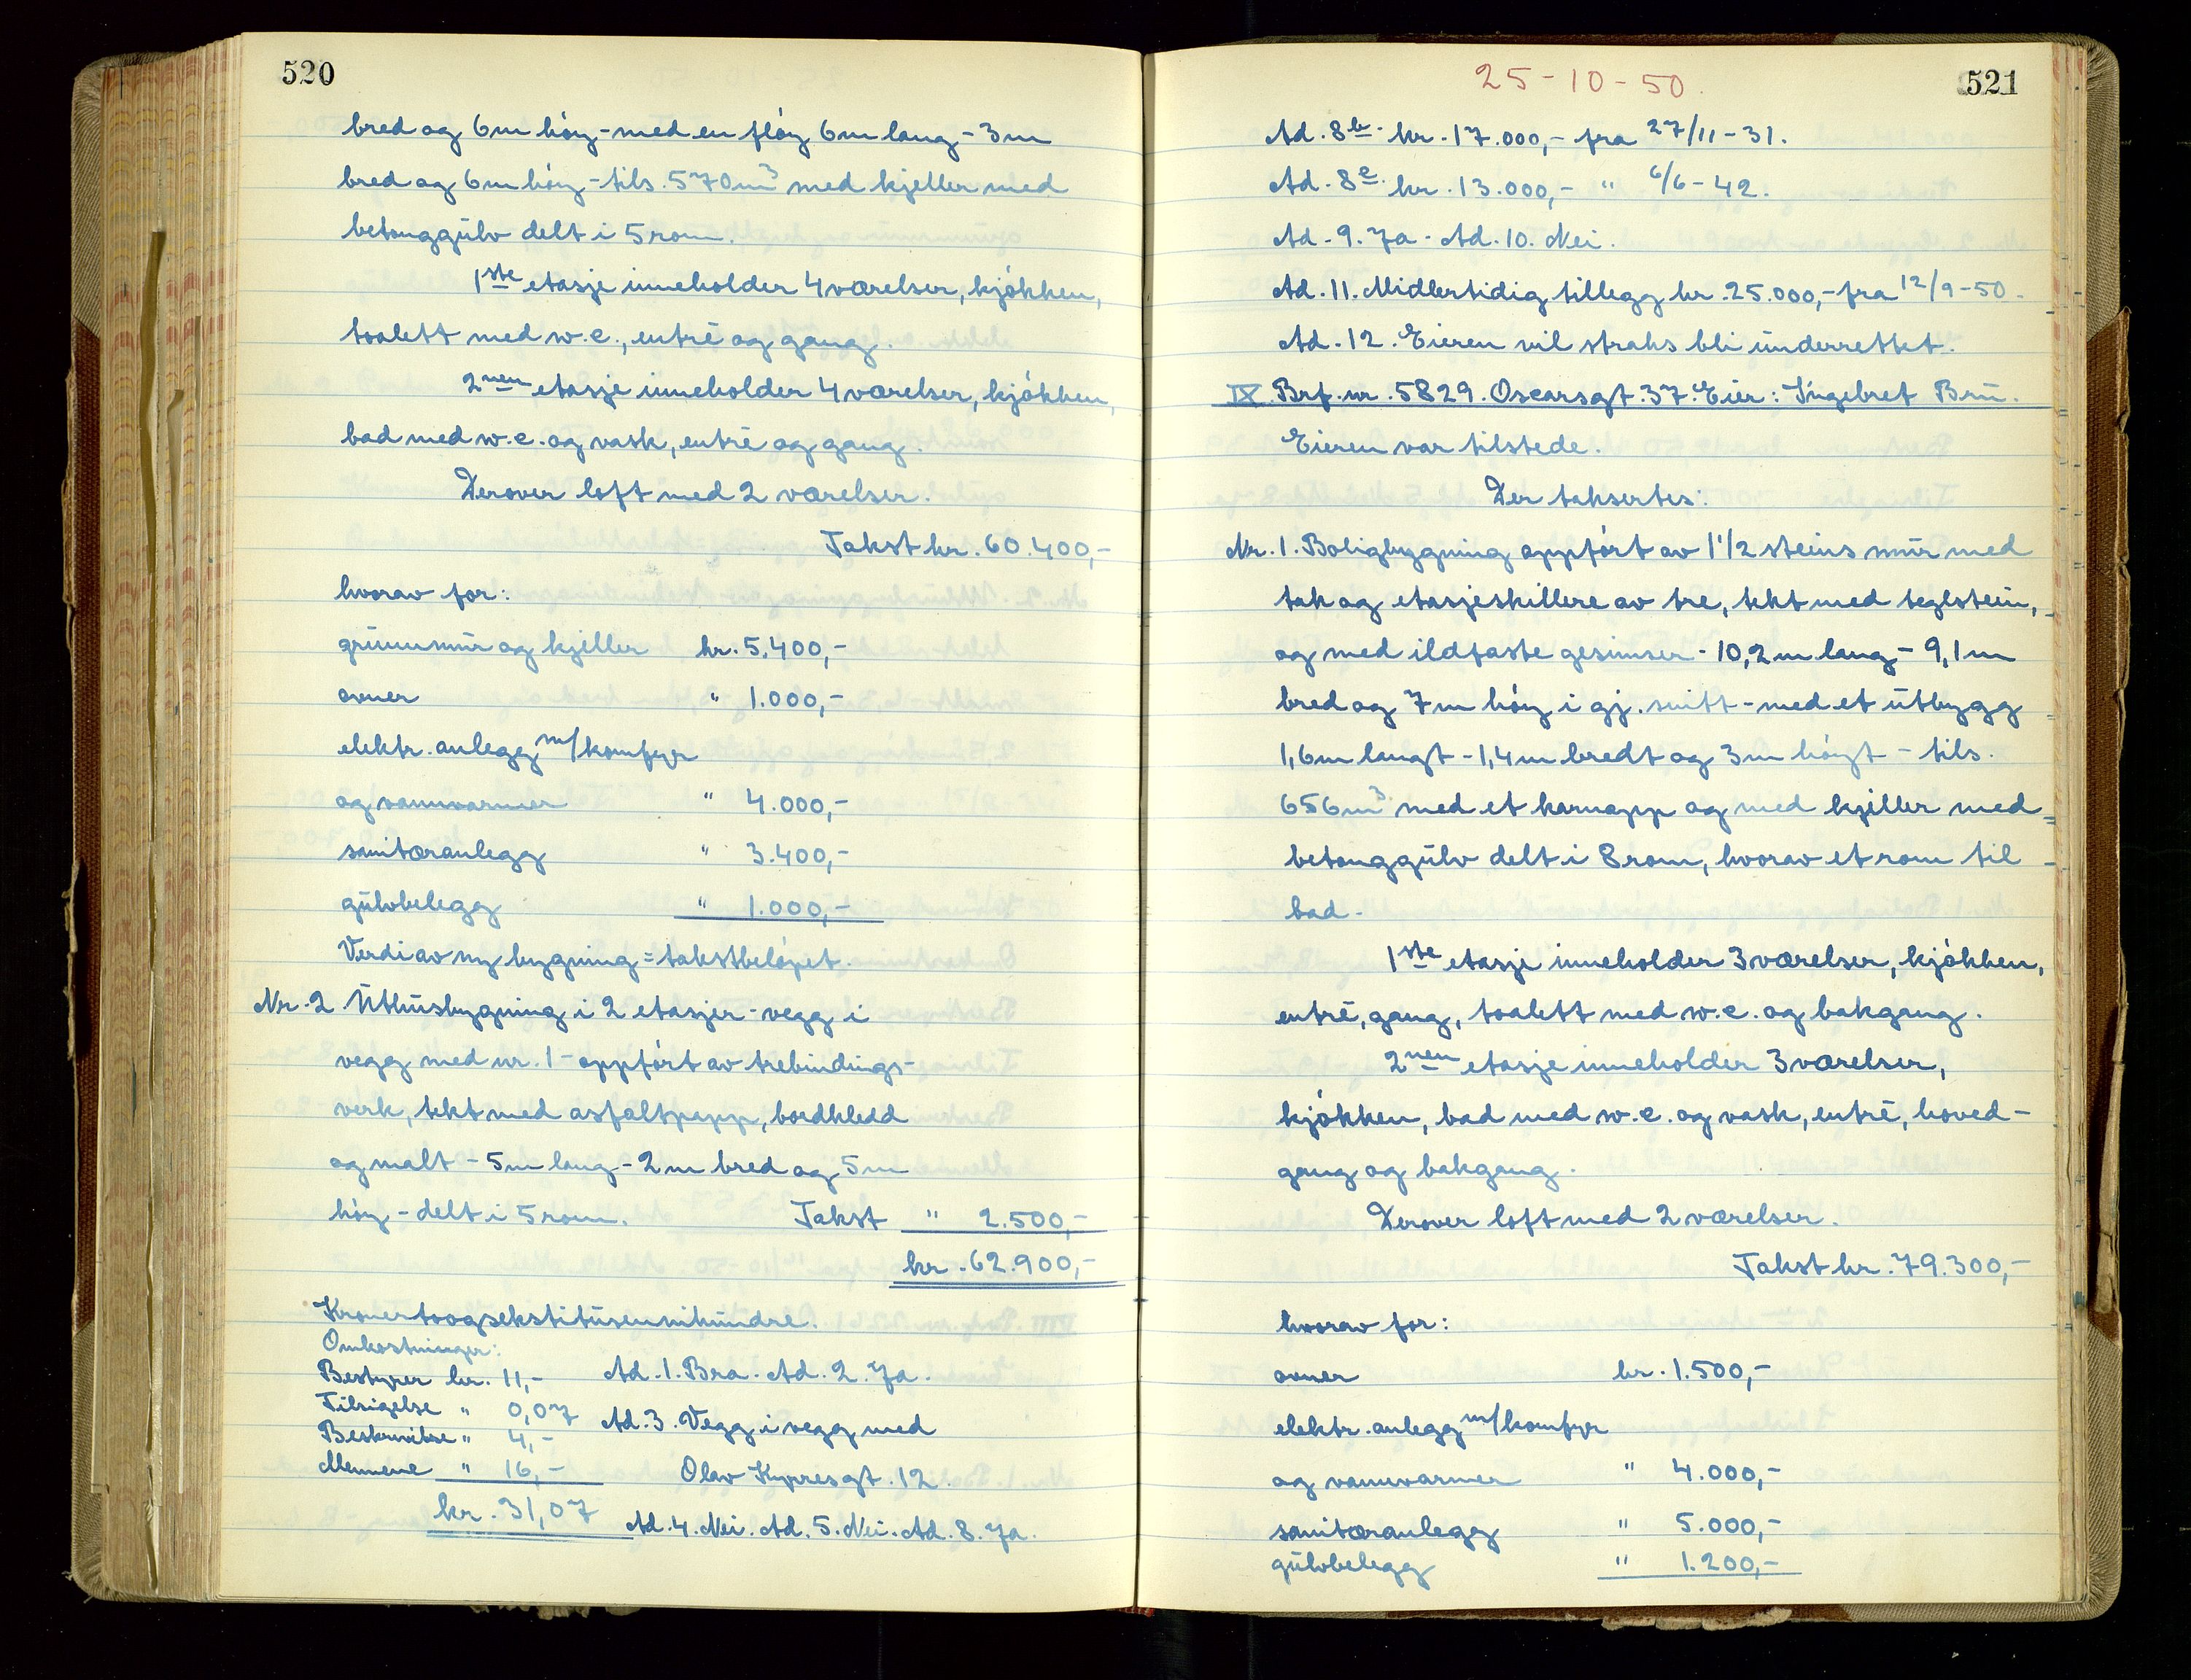 520
bred og 6m høy - med en fløy 6m lang - 3m
bred og 6m høy - tils. 570m³ med kjeller med
betonggulv delt i 5 rom.
1ste etasje inneholder 4 værelser, kjøkken,
toalett med w.c., entré og gang.
2nen etasje inneholder 4 værelser, kjøkken,
bad med w.c. og vask, entré og gang.
Derover loft med 2 værelser.
Takst kr. 60.400,-
hvorav for:
grunnmur og kjeller kr. 5.400,-
ovner " 1.000,-
elektr. anlegg m/komfyr
og vannvarmer " 4.000,-
sanitæranlegg " 3.400,-
gulvbelegg " 1.000,-
Verdi av ny bygning = takstbeløpet.
Nr. 2 Uthusbygning i 2 etasjer - vegg i
vegg med nr. 1 - oppført av trebindings-
verk, tekt med asfaltpapp, bordkledd
og malt - 5m lang - 2m bred og 5m
høy - delt i 5 rom. Takst " 2.500,-
kr. 62.900,-
Kronertoogsekstitusennihundre.
Omkostninger:
Bestyrer kr. 11,- Ad. 1. Bra. Ad. 2. Ja.
Tilsigelse " 0,07 Ad. 3. Vegg i vegg med
Beskrivelse " 4,-
Mennene " 16,- Olav Kyrresgt. 12.
kr. 31,07 Ad. 4. Nei. Ad. 5. Nei. Ad. 8. Ja.
25-10-50.
521
Ad. 8b. kr. 17.000,- fra 27/11-31.
Ad. 8c. kr. 13.000,- " 6/6-42.
Ad. 9. Ja. Ad. 10. Nei.
Ad. 11. Midlertidig tillegg kr. 25.000,- fra 12/9-50.
Ad. 12. Eieren vil straks bli underrettet.
IX. Brf. nr. 5829. Oscarsgt. 37. Eier: Ingebret Bru.
Eieren var tilstede.
Der taksertes:
Nr. 1. Boligbygning oppført av 1 1/2 steins mur med
tak og etasjeskillere av tre, tekt med teglstein,
og med ildfaste gesimser - 10,2m lang - 9,1m
bred og 7m høy i gj. snitt - med et utbygg
1,6m langt - 1,4m bredt og 3m høyt - tils.
656m³ med et karnapp og med kjeller med
betonggulv delt i 8 rom, hvorav et rom til
bad.
1ste etasje inneholder 3 værelser, kjøkken,
entré, gang, toalett med w.c. og bakgang.
2nen etasje inneholder 3 værelser,
kjøkken, bad med w.c. og vask, entré, hoved-
gang og bakgang.
Derover loft med 2 værelser.
Takst kr. 79.300,-
hvorav for:
ovner kr. 1.500,-
elektr. anlegg m/komfyr
og vannvarmer " 4.000,-
sanitæranlegg " 5.000,-
gulvbelegg " 1.200,-